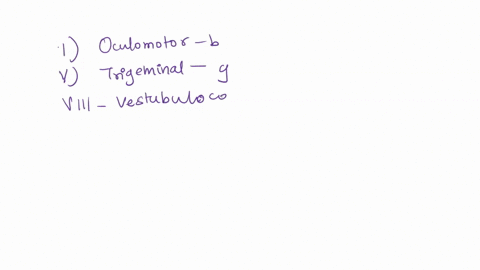 1) Oculomotor - b
V) Trigeminal - g
VIII - Vestubuloco